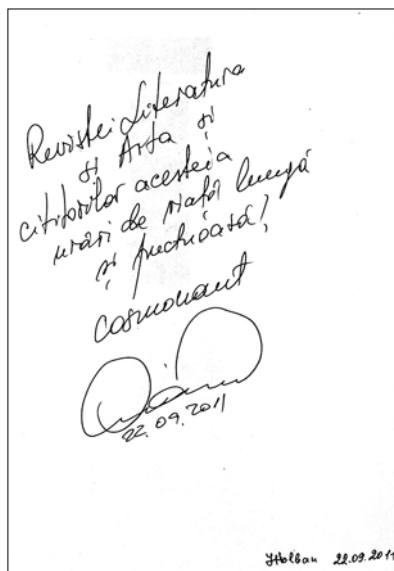 Revistei Literatura
și Arta și
cititorilor acesteia
urări de viață lungă
și fructuoasă!
cosmonaut
22.09.2011
IHolban 22.09.2011